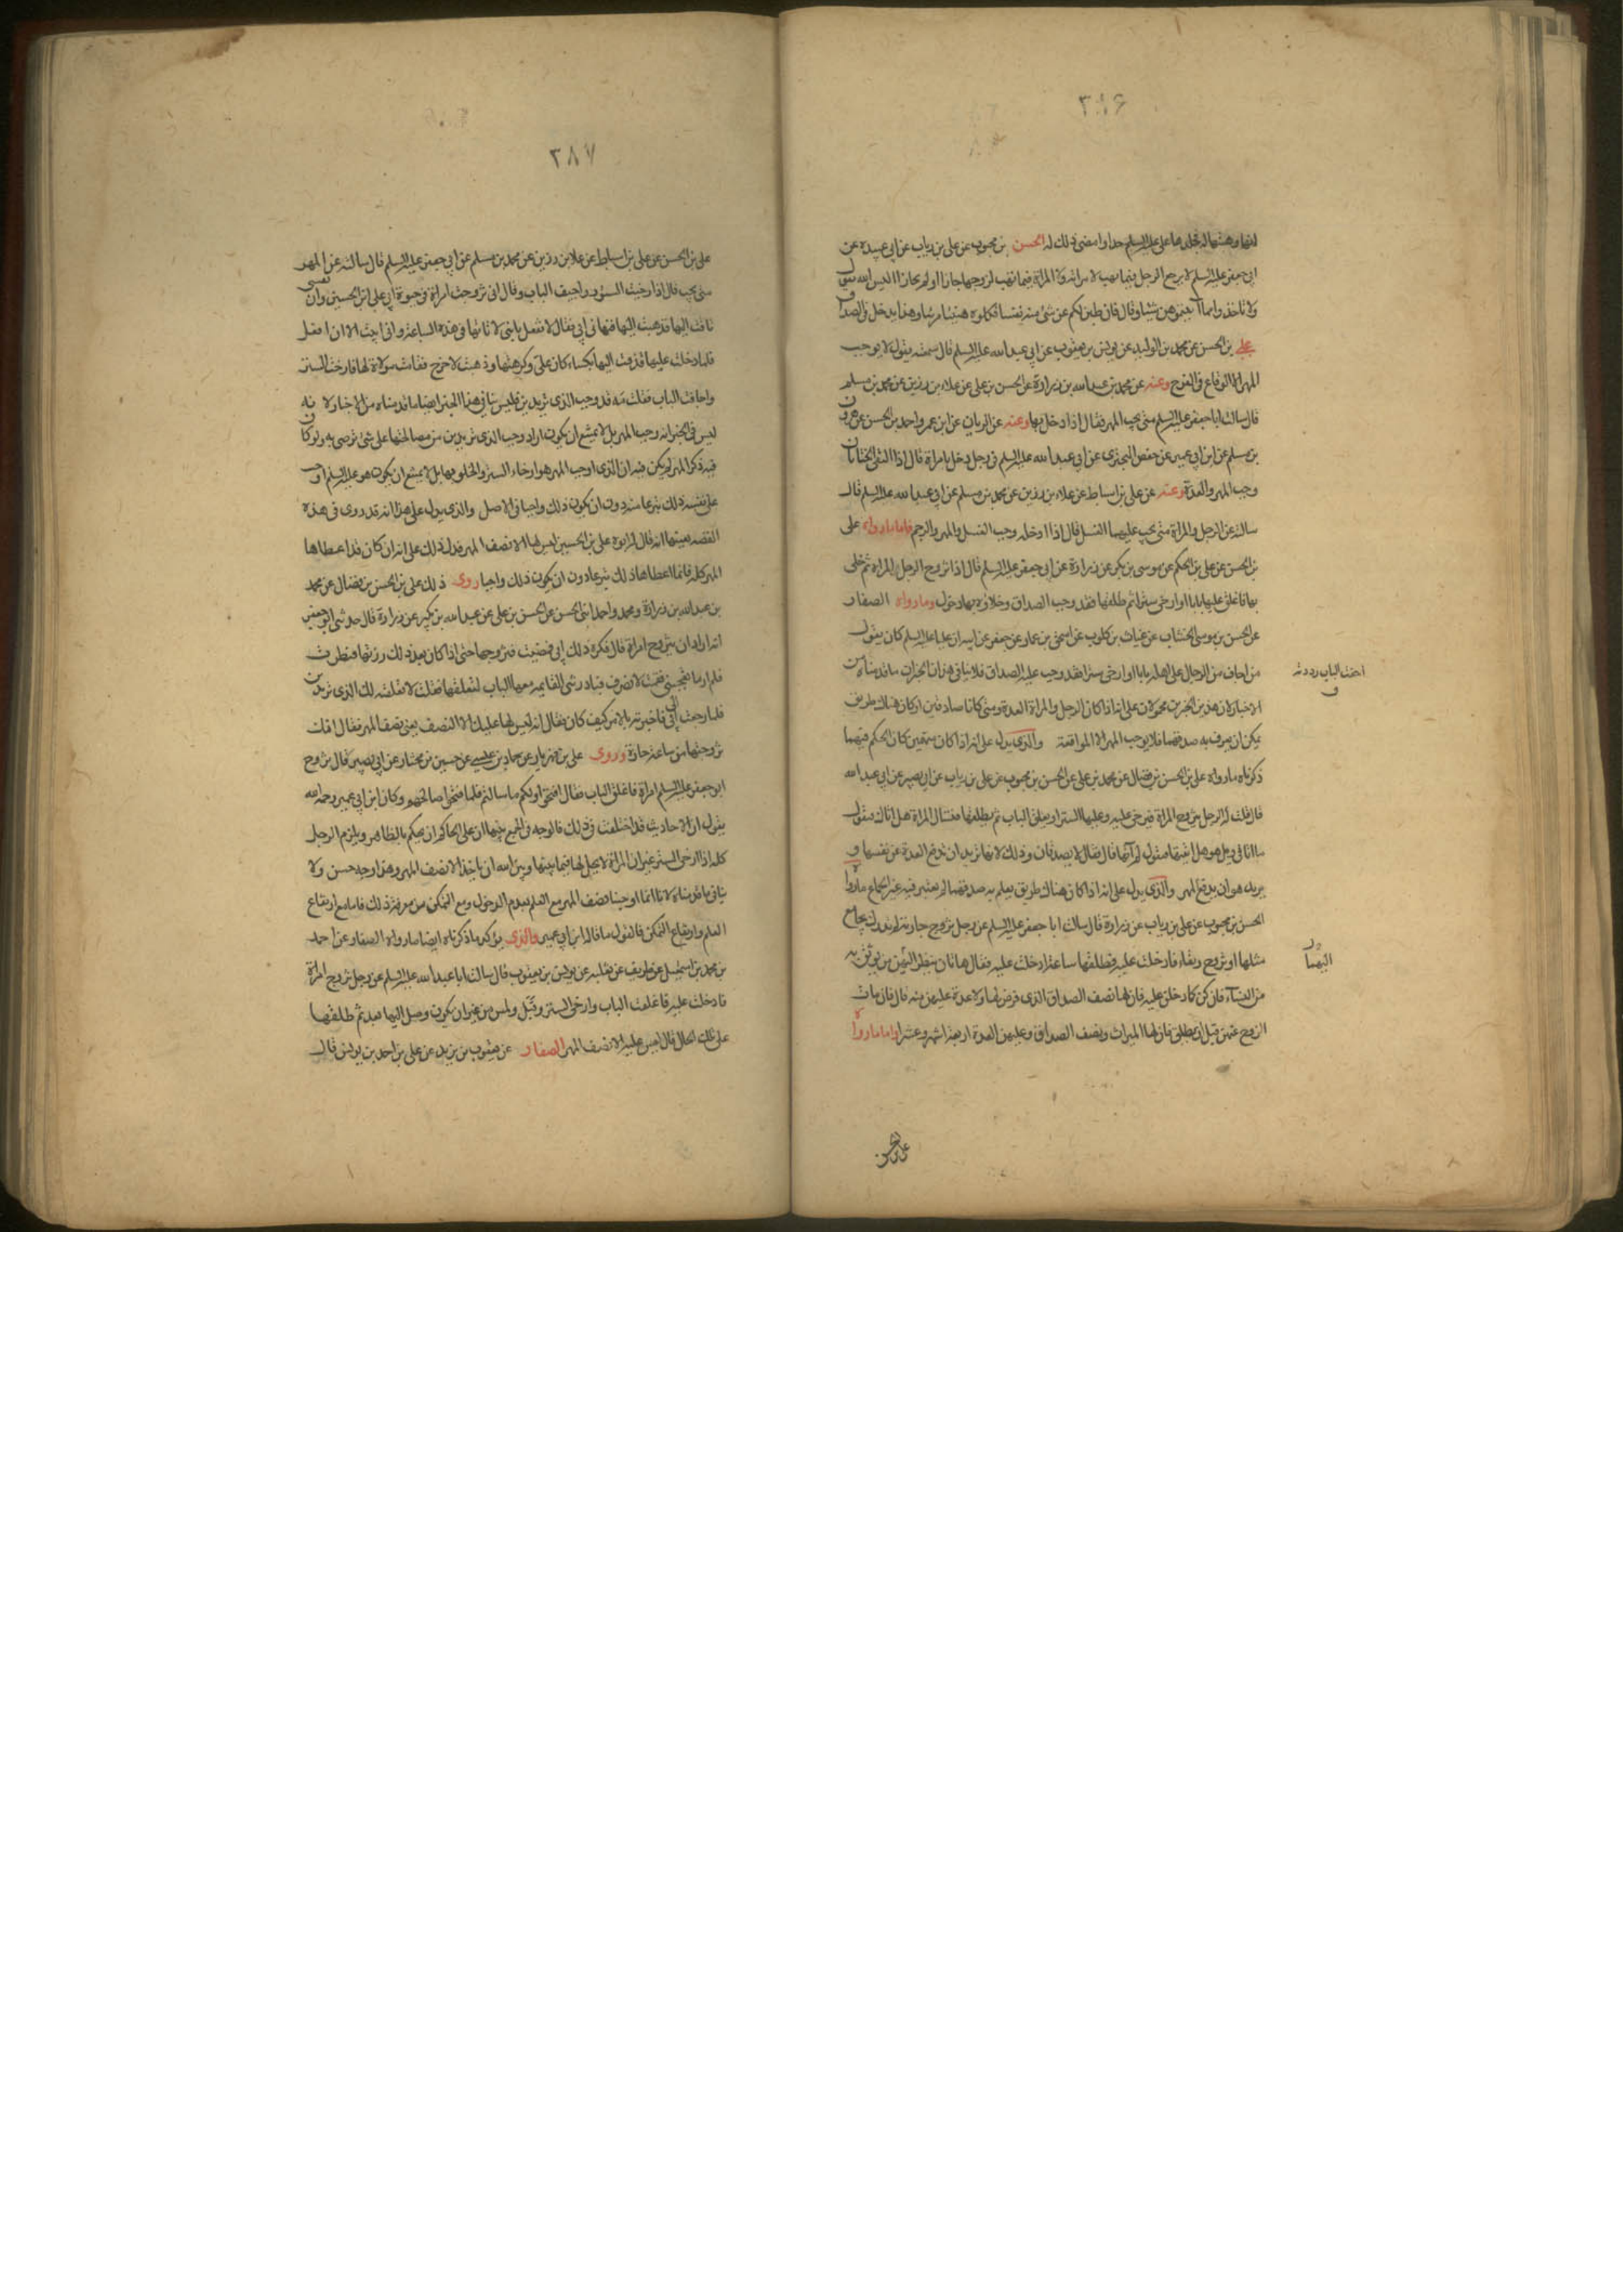 ٣٨۶
انها وهبتها له فجلدها علي عليه السلم حدا وامضى ذلك له الحسن بن محبوب عن علي بن رياب عن ابي عبيدة عن
ابي جعفر عليه السلم لا يرجع الرجل فيما يهب لامراته ولا المراة فيما تهب لزوجها جازا اولم يحازا اليس الله يقول
ولا تاخذوا مما اتيتموهن شيئا وقال فان طبن لكم عن شئ منه نفسا فكلوه هنيئا مريئا وهذا يدخل في الصداق
علي بن الحسن عن محمد بن الوليد عن يونس بن يعقوب عن ابي عبد الله عليه السلم قال سمعته يقول لا يوجب
المهر الا الوقاع في الفرج وعنه عن محمد بن عبد الله بن زرارة عن الحسن بن علي عن علاء بن رزين عن محمد بن مسلم
قال سالت ابا جعفر عليه السلم متى يجب المهر فقال اذا دخل بها وعنه عن الزيات عن ابن عمر واحمد بن الحسن عن هرون
بن مسلم عن ابن ابي عمير عن حفص البختري عن ابي عبد الله عليه السلم في رجل دخل بامراة قال اذا التقى الختانان
وجب المهر والعدة وعنه عن علي بن اسباط عن علاء بن رزين عن محمد بن مسلم عن ابي عبد الله عليه السلم قال
سالته عن الرجل والمراة متى يجب عليهما الغسل قال اذا ادخله وجب الغسل والمهر والرجم فاما ما رواه علي
بن الحسن عن علي بن الحكم عن موسى بن بكر عن زرارة عن ابي جعفر عليه السلم قال اذا تزوج الرجل المراة ثم خلى
بها فاغلق عليها بابا او ارخى سترا ثم طلقها فقد وجب الصداق وخلاؤه بها دخول وما رواه الصفار
عن الحسن بن موسى الخشاب عن غياث بن كلوب عن اسحق بن عمار عن جعفر عن ابيه ان عليا عليه السلم كان يقول
من اجاف من الرجال على اهله بابا او ارخى سترا فقد وجب عليه الصداق فلا ينافي هذان الخبران ما قدمناه من
الاخبار لان هذين الخبرين محمولان على انه اذا كان الرجل والمراة العدة ومتى كانا صادقين او كان هناك طريق
يمكن ان يعرف به صدقهما فلا يوجب المهر الا المواقعة والذي يدل على انه اذا كان متهمين كان الحكم فيهما
ذكرناه ما رواه علي بن الحسن بن فضال عن محمد بن علي عن الحسن بن محبوب عن علي بن رياب عن ابي بصير عن ابي عبد الله
قال قلت له الرجل يتزوج المراة فيرخى عليه وعليها الستر او يغلق الباب ثم يطلقها فتسال المراة هل اتاك فتقول
ما اتاني ويسال هو هل اتيتها فيقول لم آتها قال فقال لا يصدقان وذلك لانها تريد ان تدفع العدة عن نفسها و
يريد هو ان يدفع المهر والذي يدل على انه اذا كان هناك طريق يعلم به صدقهما لم يعتبر فيه غير الجماع ما رواه
الحسن بن محبوب عن علي بن رياب عن زرارة قال سالت ابا جعفر عليه السلم عن رجل تزوج جارية لم تدرك لا يجامع
مثلها او تزوج رتقاء فادخلت عليه فطلقها ساعة ادخلت عليه فقال هاتان ينظر اليهن من يوثق به
من النساء فان كن كما دخلن عليه فان لها نصف الصداق الذي فرض لها ولا عدة عليهن منه قال فان مات
الزوج عنهن قبل ان يطلق فان لها الميراث ونصف الصداق وعليهن العدة اربعة اشهر وعشرا واما ما رواه
اجفت الباب رددته
ق
علي بن الحسن
٣٨٧
علي بن الحسن عن علي بن اسباط عن علا بن رزين عن محمد بن مسلم عن ابي جعفر عليه السلم قال سالته عن المهر
متى يجب قال اذا ارخيت الستور واجيف الباب وقال اني تزوجت امراة في حيوة ابي علي بن الحسين وان نفسي
تاقت اليها فذهبت اليها فنهاني ابي فقال لا تفعل يا بني لا تاتها في هذه الساعة واني ابيت الا ان افعل
فلما دخلت عليها قذفت اليها بكساء كان علي وكرهتها وذهبت لاخرج فقامت مولاة لها فارخت الستر
واجافت الباب فقلت مه قد وجب الذي تريدين فليس ينافي هذا الخبر ايضا ما قدمناه من الاخبار لانه
ليس في الخبر انه وجب المهر بل لا يمتنع ان يكون اراد وجب الذي تريدين من مصالحتها على شئ ترضى به ولو كان
فيه ذكر المهر لم يكن فيه ان الذي اوجب المهر هو ارخاء الستر والخلو بها بل لا يمتنع ان يكون هو عليه السلم اوجب
على نفسه ذلك تبرعا منه دون ان يكون ذلك واجبا في الاصل والذي يدل على هذا انه قد روى في هذه
القصه بعينها انه قال له ابوه علي بن الحسين ليس لها الا نصف المهر فدل ذلك على انه ان كان قد اعطاها
المهر كله فانما اعطاها ذلك تبرعا دون ان يكون ذلك واجبا روى ذلك علي بن الحسن بن فضال عن محمد
بن عبد الله بن زرارة ومحمد واحمد ابني الحسن عن الحسن بن علي عن عبد الله بن بكير عن زرارة قال حدثني ابو جعفر
انه اراد ان يتزوج امراة قال فكره ذلك ابي فمضيت فتزوجتها حتى اذا كان بعد ذلك زرتها فنظرت
فلم ار ما يعجبني فقمت لانصرف فبادرتني القايمه معها الباب لتغلقه فقلت لا تغلقيه لك الذي تريدين
فلما رجعت الى ابي فاخبرته بالامر كيف كان فقال انه ليس لها عليك الا النصف يعني نصف المهر فقال انك
تزوجتها في ساعة حارة وروى علي بن مهزيار عن حماد بن عيسى عن حسين بن مختار عن ابي بصير قال تزوج
ابو جعفر عليه السلم امراة فاغلق الباب فقال افتحوا ولكم ما سالتم فلما فتحوا صالحهم وكان ابن ابي عمير رحمه الله
يقول ان الاحاديث قد اختلفت في ذلك فالوجه في الجمع بينها ان على الحاكم ان يحكم بالظاهر ويلزم الرجل
كله اذا ارخى الستر غير ان المراة لا يحل لها فيما بينها وبين الله ان تاخذ الا نصف المهر وهذا وجه حسن ولا
ينافي ما قدمناه لانا انما اوجبنا نصف المهر مع العلم بعدم الدخول ومع التمكن من معرفة ذلك فاما مع ارتفاع
العلم وارتفاع التمكن فالقول ما قاله ابن ابي عمير والذي يؤكد ما ذكرناه ايضا ما رواه الصفار عن احمد
بن محمد بن اسمعيل عن طريف عن ثعلبه عن يونس بن يعقوب قال سالت ابا عبد الله عليه السلم عن رجل تزوج امراة
فادخلت عليه فاغلقت الباب وارخى الستر وقبل ولمس من غير ان يكون وصل اليها بعد ثم طلقها
على تلك الحال قال ليس عليه الا نصف المهر الصفار عن يعقوب بن يزيد عن علي بن احمد بن يونس قال